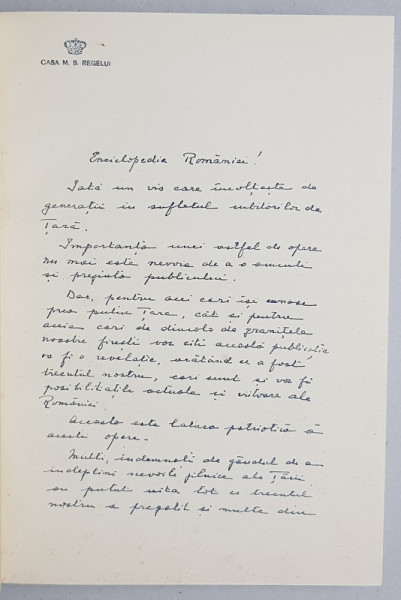 CASA M. S. REGELUI
Enciclopedia României!
Iată un vis care încolțește de
generații in sufletul iubitorilor de
Țară.
Importanța unei astfel de opere
nu mai este nevoie de a o aminti
și preținta publicului.
Dar, pentru acei cari își cunosc
prea puțin Țara, cât și pentru
aceia cari de dincolo de granițele
noastre firești vor citi această publicație
va fi o revelație, arătând ce a fost
trecutul nostru, cari sunt și va fi
posibilitățile actuale și viitoare ale
României.
Aceasta este latura patriotică a
acestei opere.
Mulți, indemnați de gândul de a
indeplini nevoile zilnice ale Țării
au putut uita tot ce trecutul
nostru a pregătit și multe din